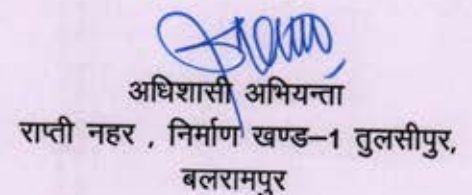 अधिशासी अभियन्ता
राप्ती नहर , निर्माण खण्ड–1 तुलसीपुर,
बलरामपुर